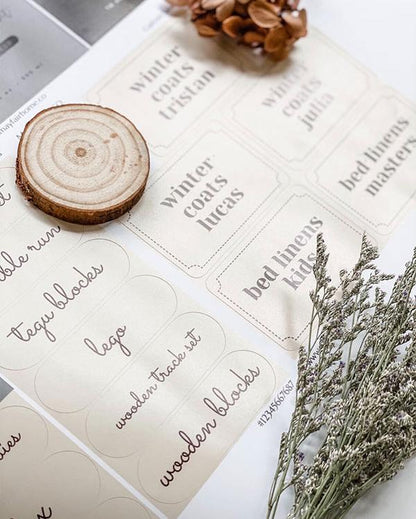 mayfairhome.co
winter
coats
tristan
winter
coats
julia
winter
coats
lucas
bed linens
masters
bed linens
kids
ble run
tegu blocks
lego
wooden track set
wooden blocks
#12345667687